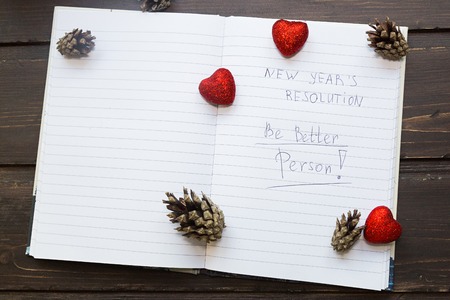 NEW YEAR'S
RESOLUTION
Be Better
Person!